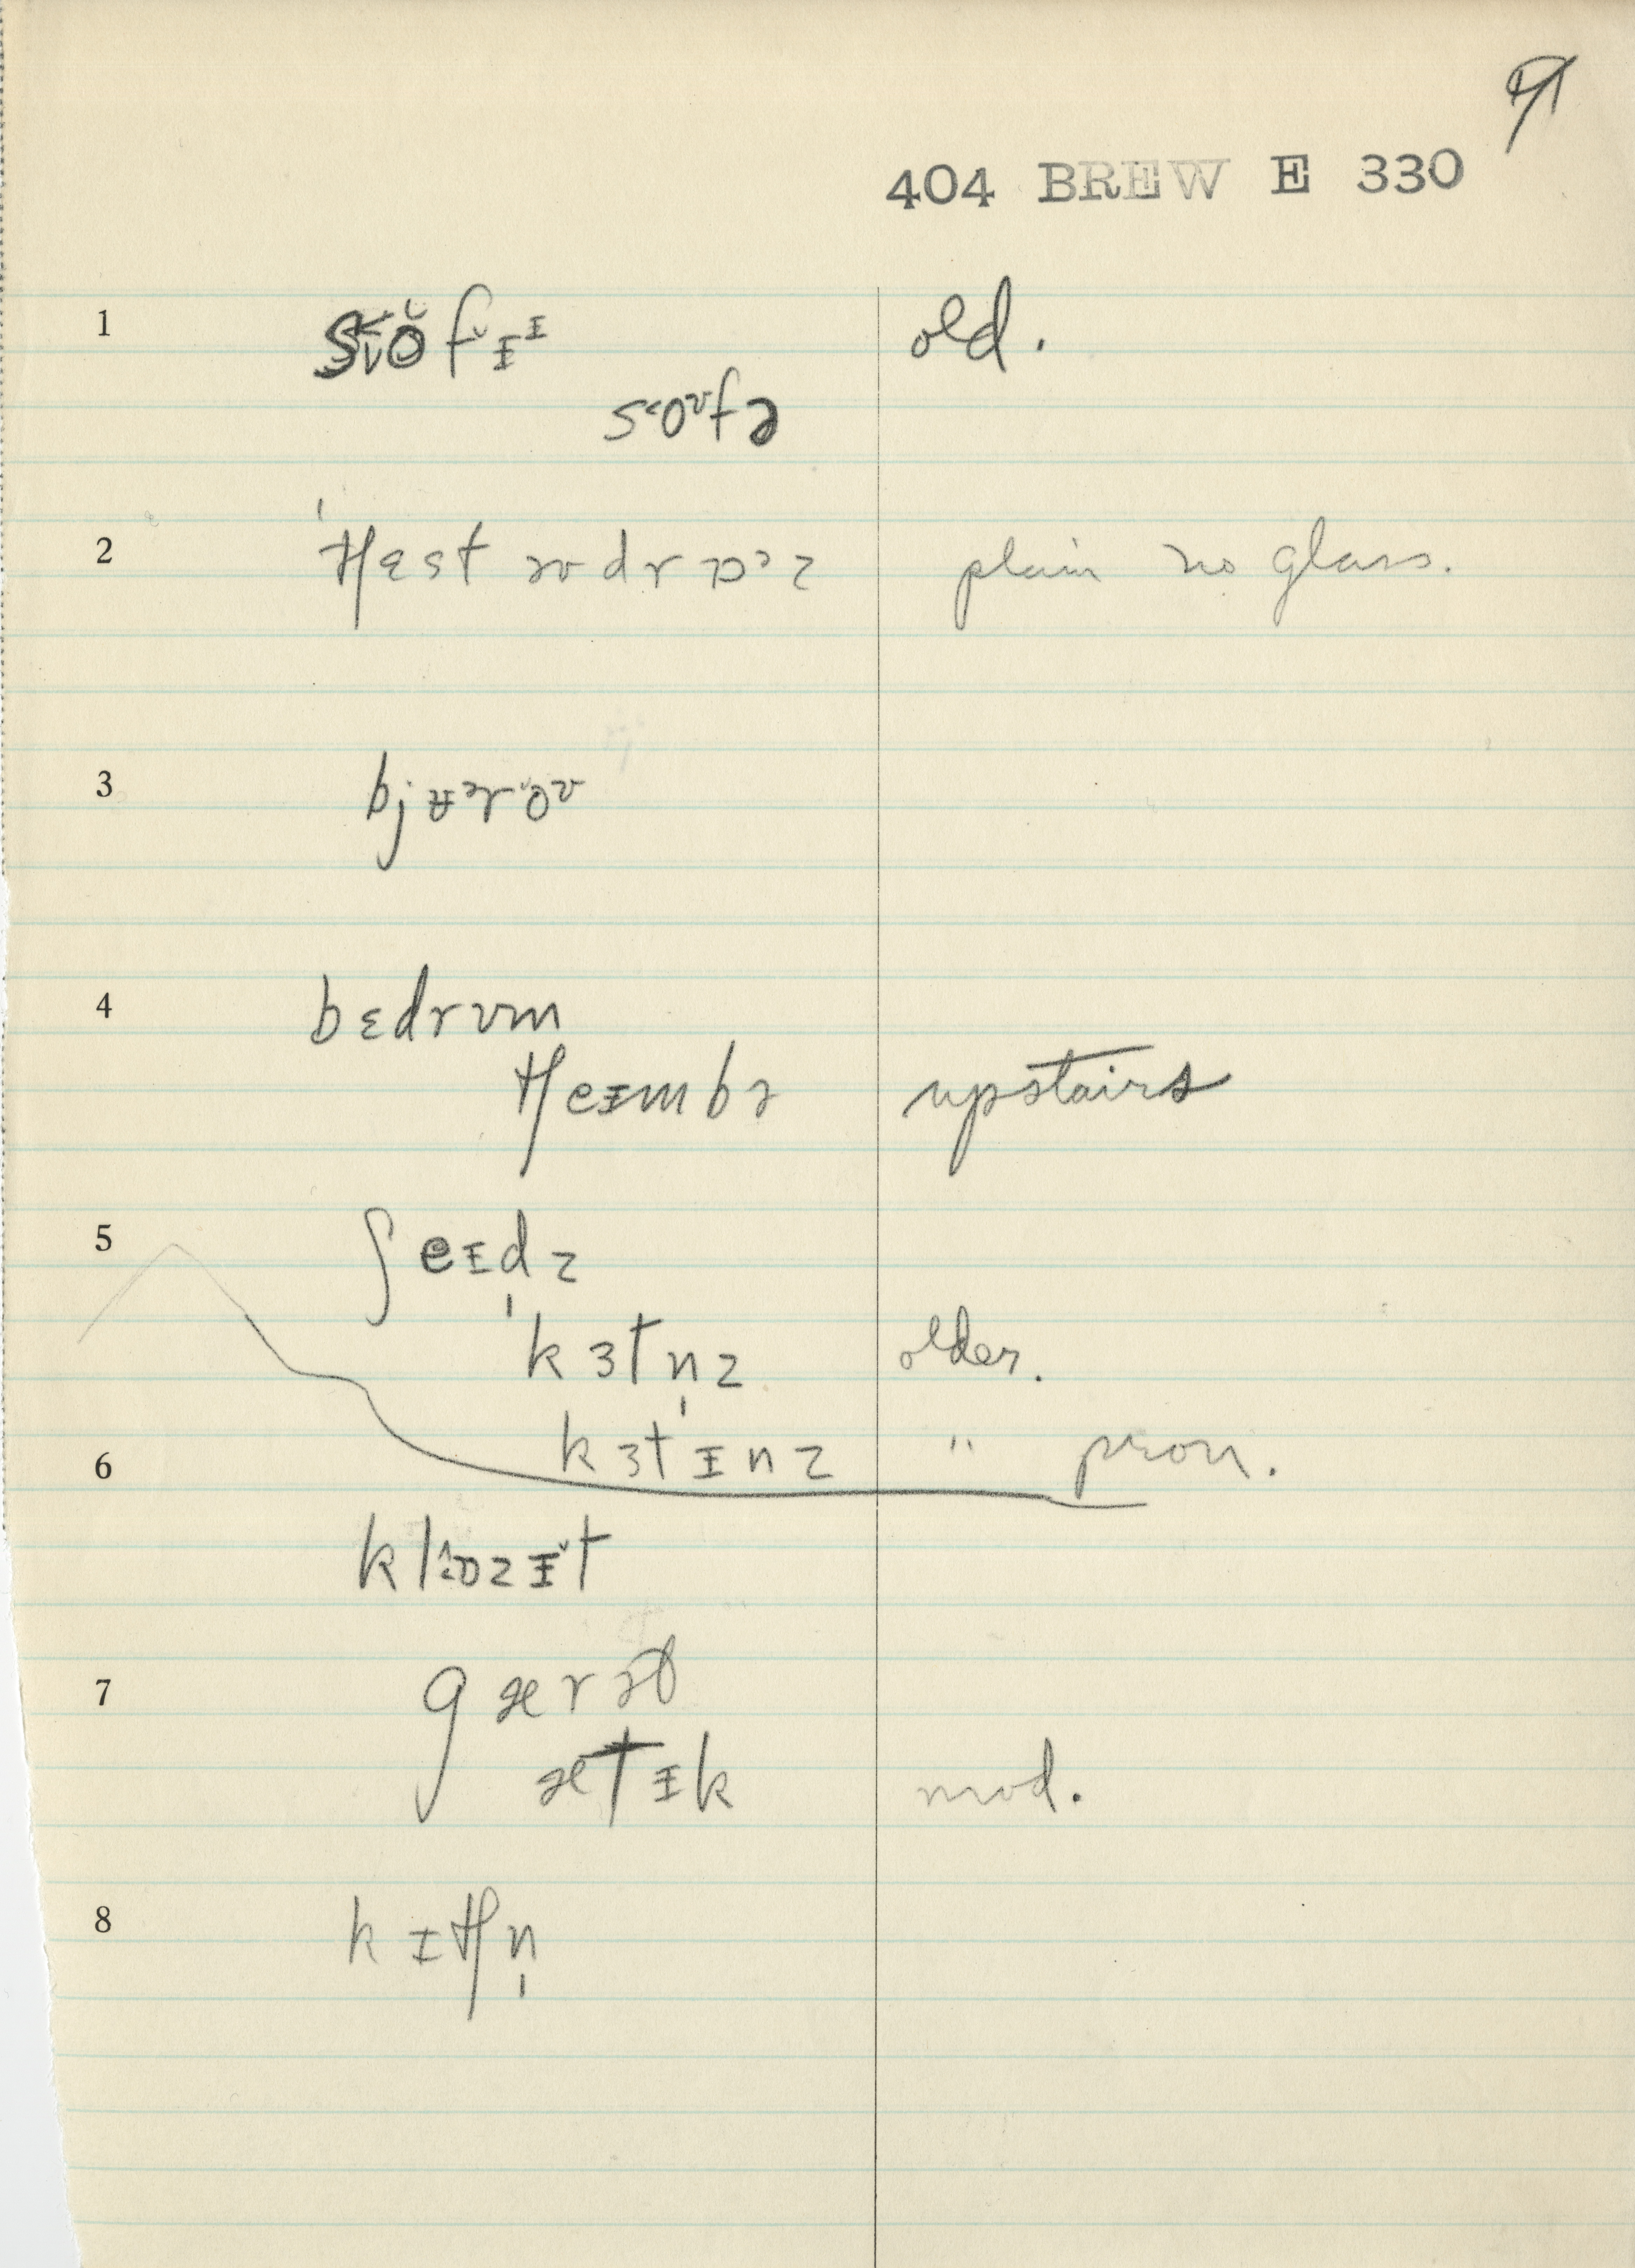 9
404 BREW E 330
1 s˂ŏfɪ̆ᶦ old.
s˂oᶷfə
2 ˈtʃɛst əv drɒᵊz plain no glass.
3 bjʉᵊroᶷ
4 bɛdrʊm
tʃeɪmbə upstairs
5 ʃeɪdz
kɜtn̩z older.
6 kɜtɪnz " pron.
klɒzɪ̆t
7 gærət
ætɪk mod.
8 kɪtʃn̩